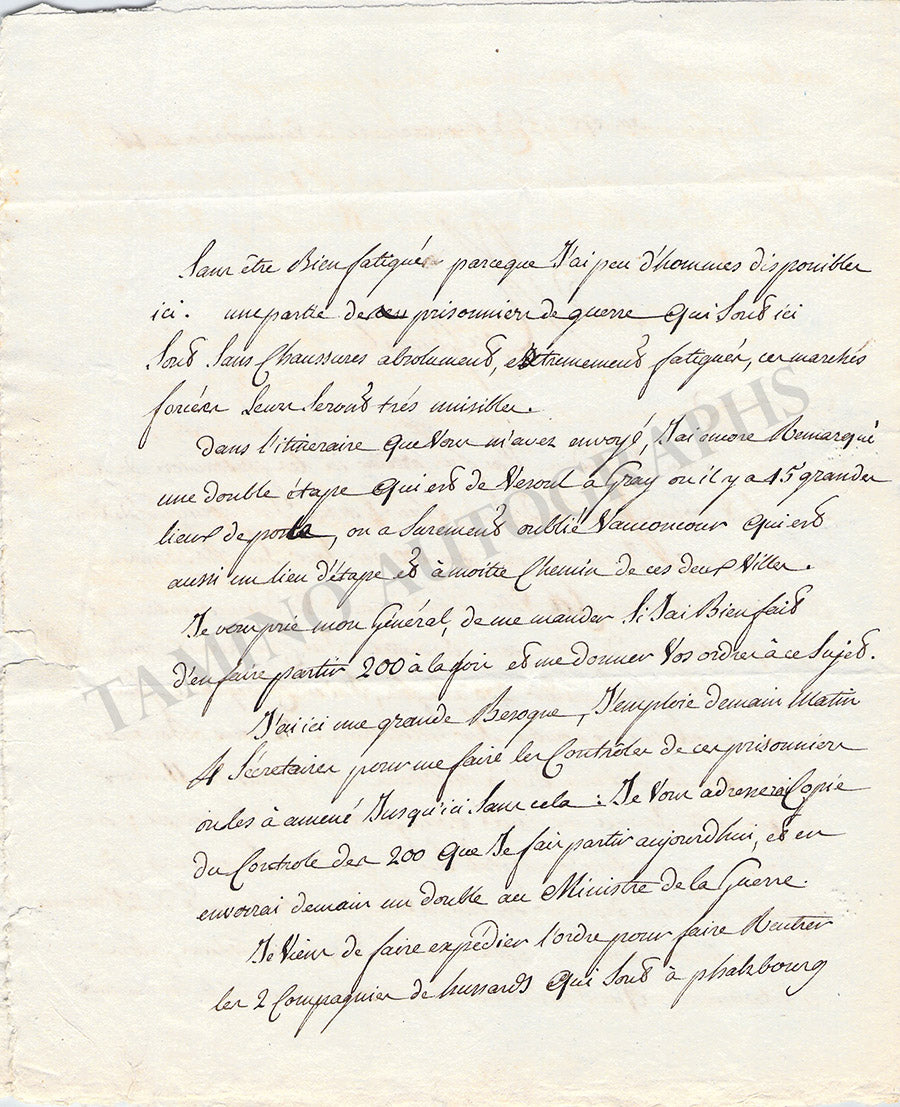 sans être Bien fatigués parceque J'ai peu d'hommes disponibles
ici. une partie des prisonniers de guerre qui sont ici
sont sans chaussures absolument, extremement fatigués, ces marches
forcées leur seront trés nuisibles.
dans l'itineraire que vous m'avez envoyé, J'ai encore Remarqué
une double étape qui est de Vesoul à Gray ou il y a 15 grandes
lieues de poste, on a surement oublié Vauconcour qui est
aussi un lieu d'étape et à moitié chemin de ces deux Villes.
Je vous prie mon Général, de me mander si J'ai Bien fait
d'en faire partir 200 à la fois et me donner Vos ordres à ce sujet.
J'ai ici une grande Besogne, J'emploie demain Matin
4 Sécretaires pour me faire les Contrôles de ces prisonniers
on les à amené Jusqu'ici sans cela : Je Vous adresserai Copie
du Controle des 200 que Je fais partir aujourdhui, et en
enverrai demain un double au Ministre de la Guerre.
Je Viens de faire expédier l'ordre pour faire Rentrer
les 2 Compagnies de hussards qui sont à phalsbourg
TAMINO AUTOGRAPHS